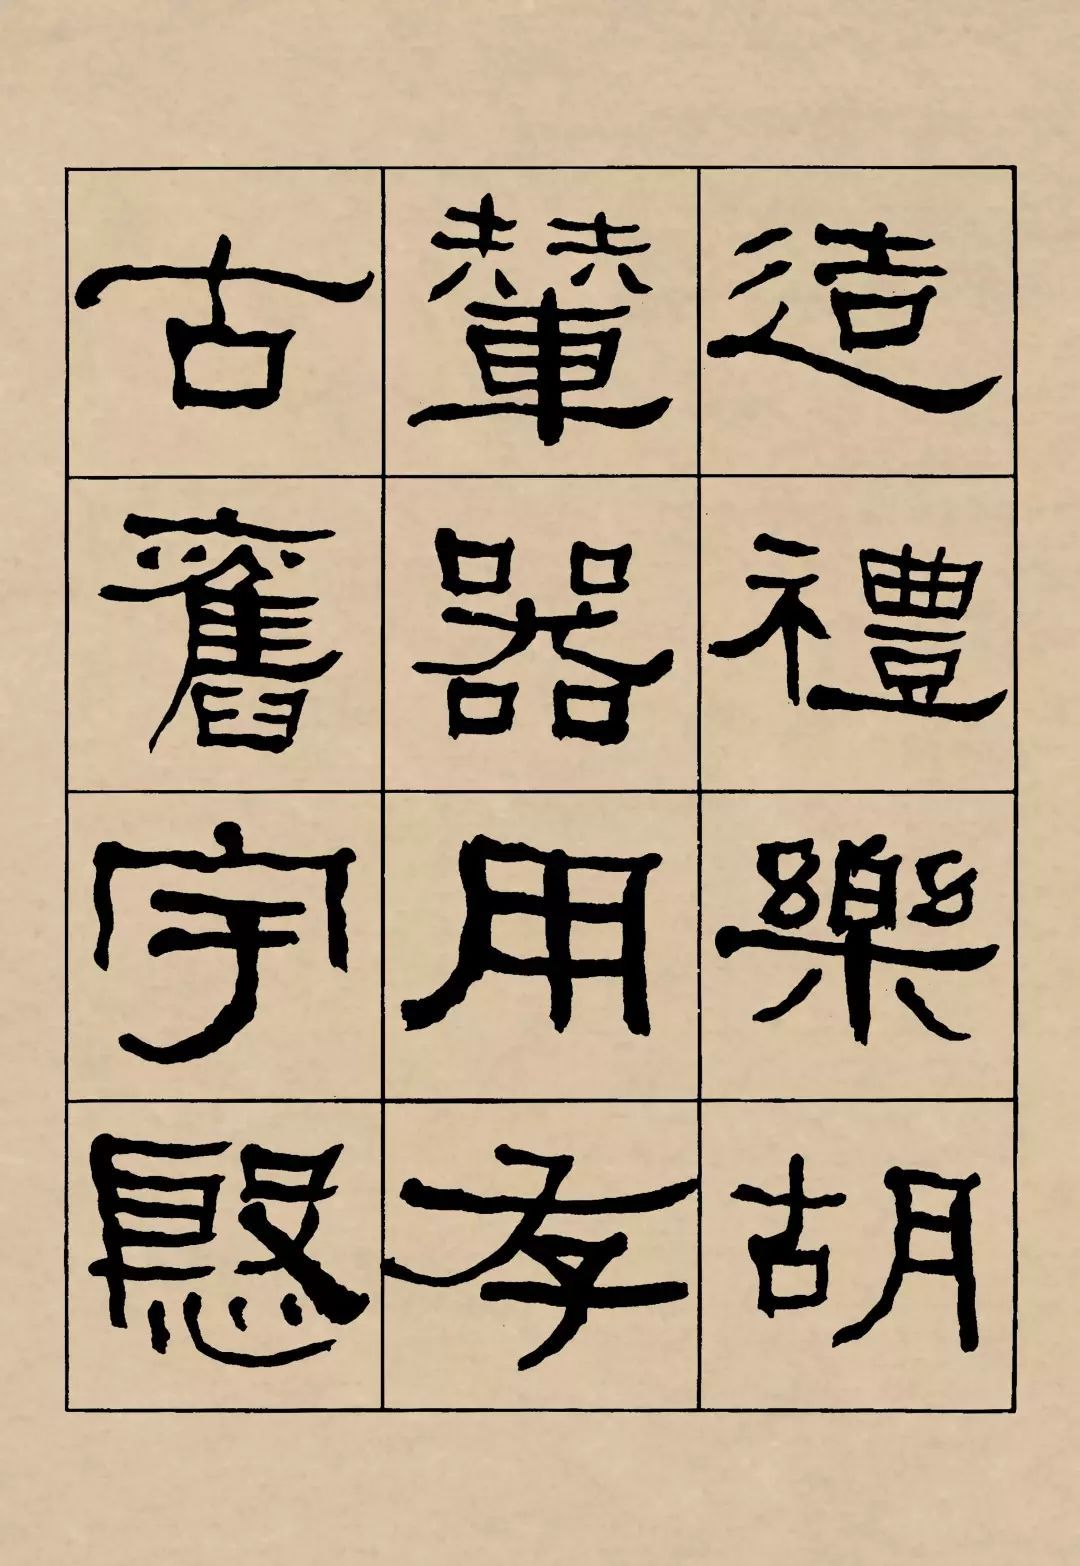 造禮樂胡
輦器用存
古舊宇慇